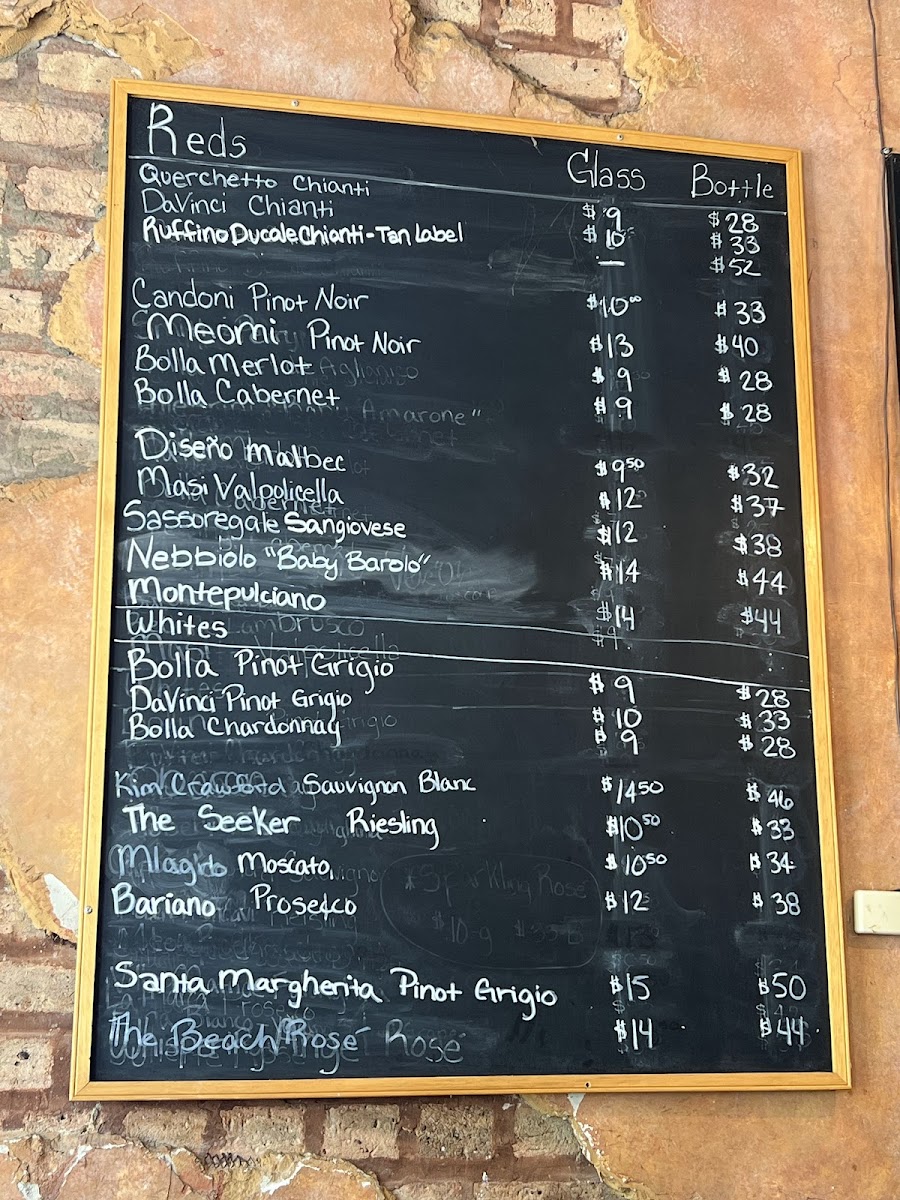 Reds Glass Bottle
Querchetto Chianti $9 $28
DaVinci Chianti $10 $33
Ruffino Ducale Chianti - Tan Label — $52
Candoni Pinot Noir $10⁰⁰ $33
Meomi Pinot Noir $13 $40
Bolla Merlot $9 $28
Bolla Cabernet $9 $28
Diseño Malbec $9⁵⁰ $32
Masi Valpolicella $12 $37
Sassoregale Sangiovese $12 $38
Nebbiolo "Baby Barolo" $14 $44
Montepulciano $14 $44
Whites
Bolla Pinot Grigio $9 $28
DaVinci Pinot Grigio $10 $33
Bolla Chardonnay $9 $28
Kim Crawford Sauvignon Blanc $14⁵⁰ $46
The Seeker Riesling $10⁵⁰ $33
Mlagido Moscato $10⁵⁰ $34
Bariano Prosecco $12 $38
Santa Margherita Pinot Grigio $15 $50
The Beach Rosé Rosé $14 $44